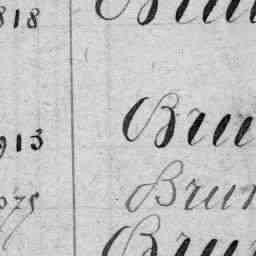 818 Bru
913 Bru
075 Brun
Brun